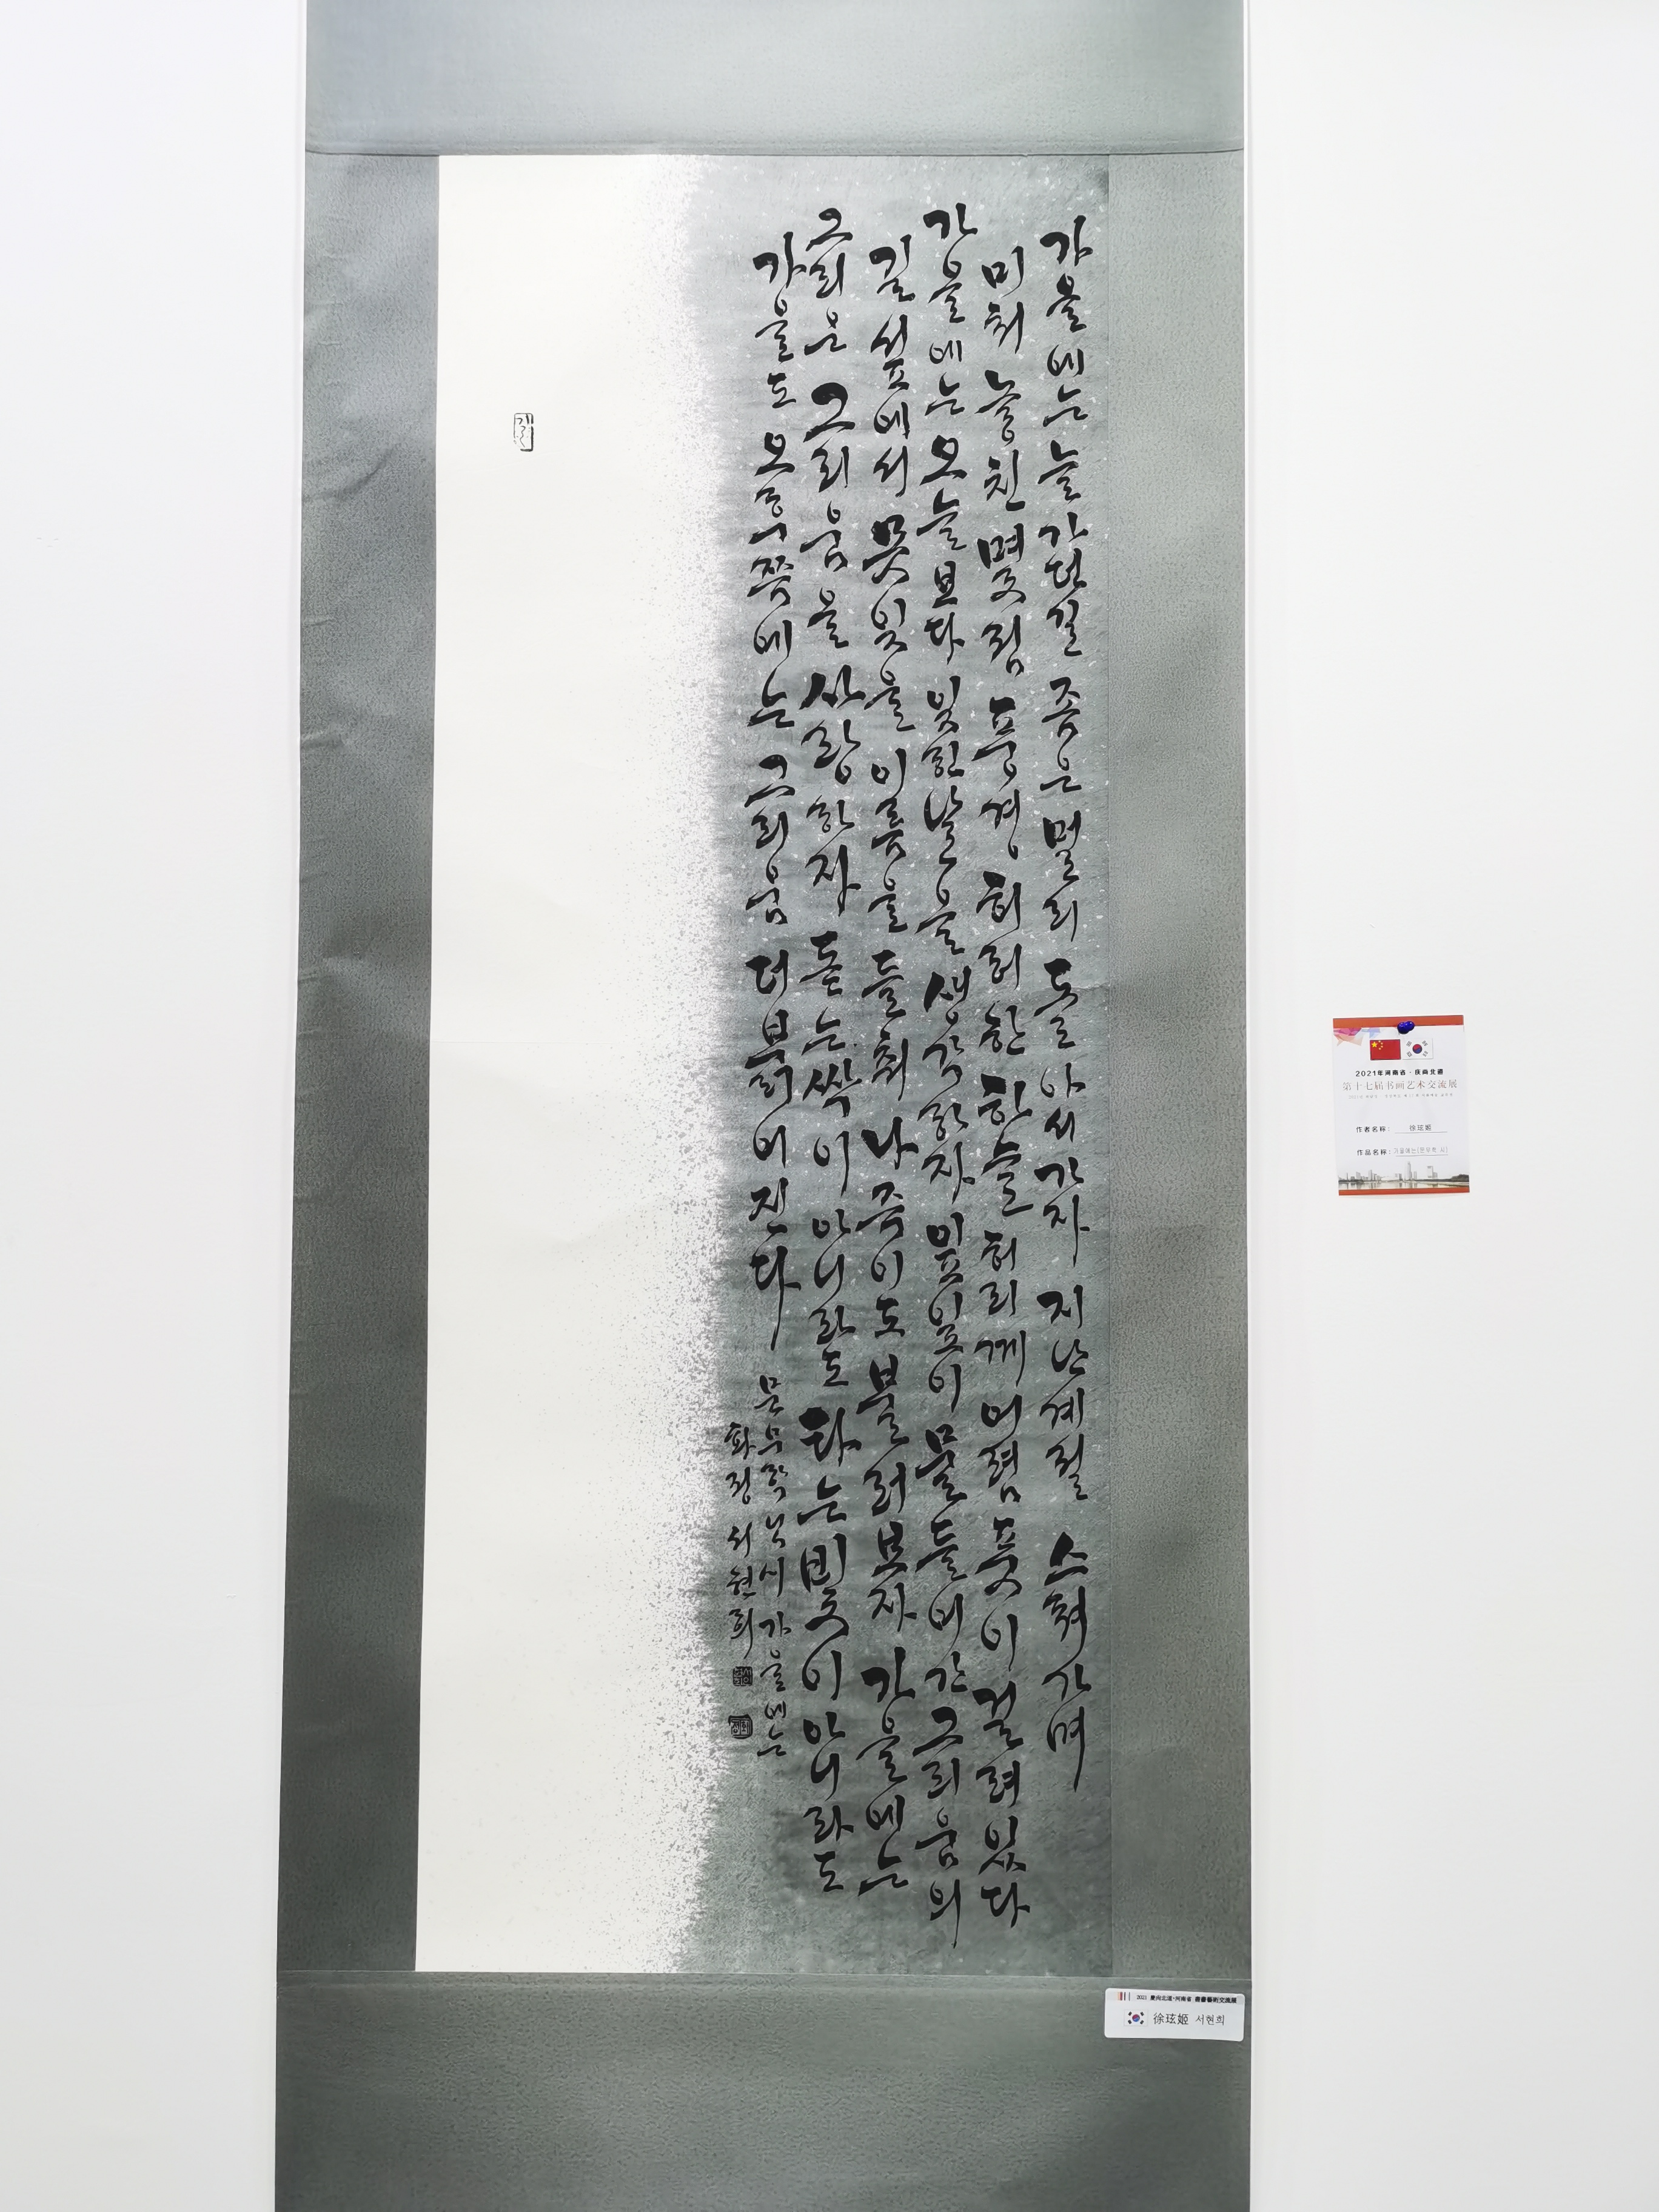 가을에는 늘 가던 길 좀은 멀리 돌아서 가자 지난 계절 스쳐가며
미처 놓친 몇 점 풍경 허허한 하늘 허리께 어쩜 풋이 걸려있다
가을에는 오늘보다 잊힌 날을 생각하자 잎잎이 물들어 간 그리움의
길섶에서 못 잊을 이름을 들춰 나즉이도 불러보자 가을에는
그리운 그리움을 사랑하자 돋는 싹이 아니라도 타는 빛이 아니라도
가을도 오후쯤에는 그리움 더 붉어진다
문무학 님 시 가을에는
화정 서현희
2021年河南省·庆尚北道
第十七届书画艺术交流展
作者名称: 徐玹姬
作品名称: 가을에는(문무학 시)
2021 慶尚北道·河南省 書畵藝術交流展
徐玹姬 서현희